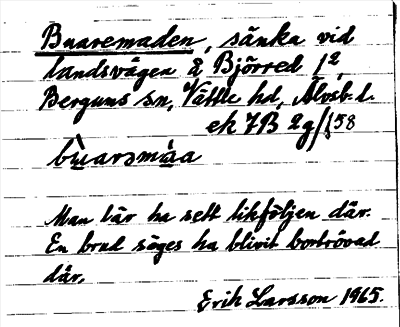 Buaremaden, sänka vid
landsvägen å Björred 1²,
Bergums sn, Vättle hd, Älvsb. l.
ek 7B 2g/j58
bu̱arsma̱a
Man lär ha sett likföljen där.
En brud säges ha blivit bortrövad
där.
Erik Larsson 1965.